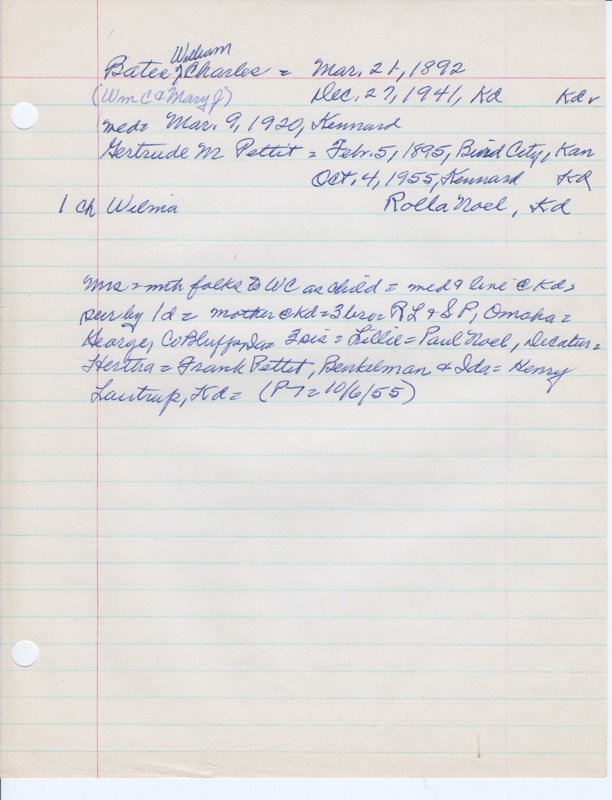 William
Bates, Charles = Mar. 21, 1892
(Wm C & Mary J) Dec. 27, 1941, Kd Kd
med = Mar. 9, 1920, Kennard
Gertrude M Pettit = Febr. 5, 1895, Bird City, Kan
Oct. 4, 1955, Kennard Kd
1 ch Wilma Rolla Noel, Kd
Mrs = mth folks to WC as child = med & line @ Kd,
sur by 1 d = mother @ Kd = 3 bro = R L & S P, Omaha =
George, Co Bluffs, Ia = 3 sis = Lillie = Paul Noel, Decatur =
Hertha = Frank Pettit, Benkelman & Ida = Henry
Lautrup, Kd = (P-T = 10/6/55)